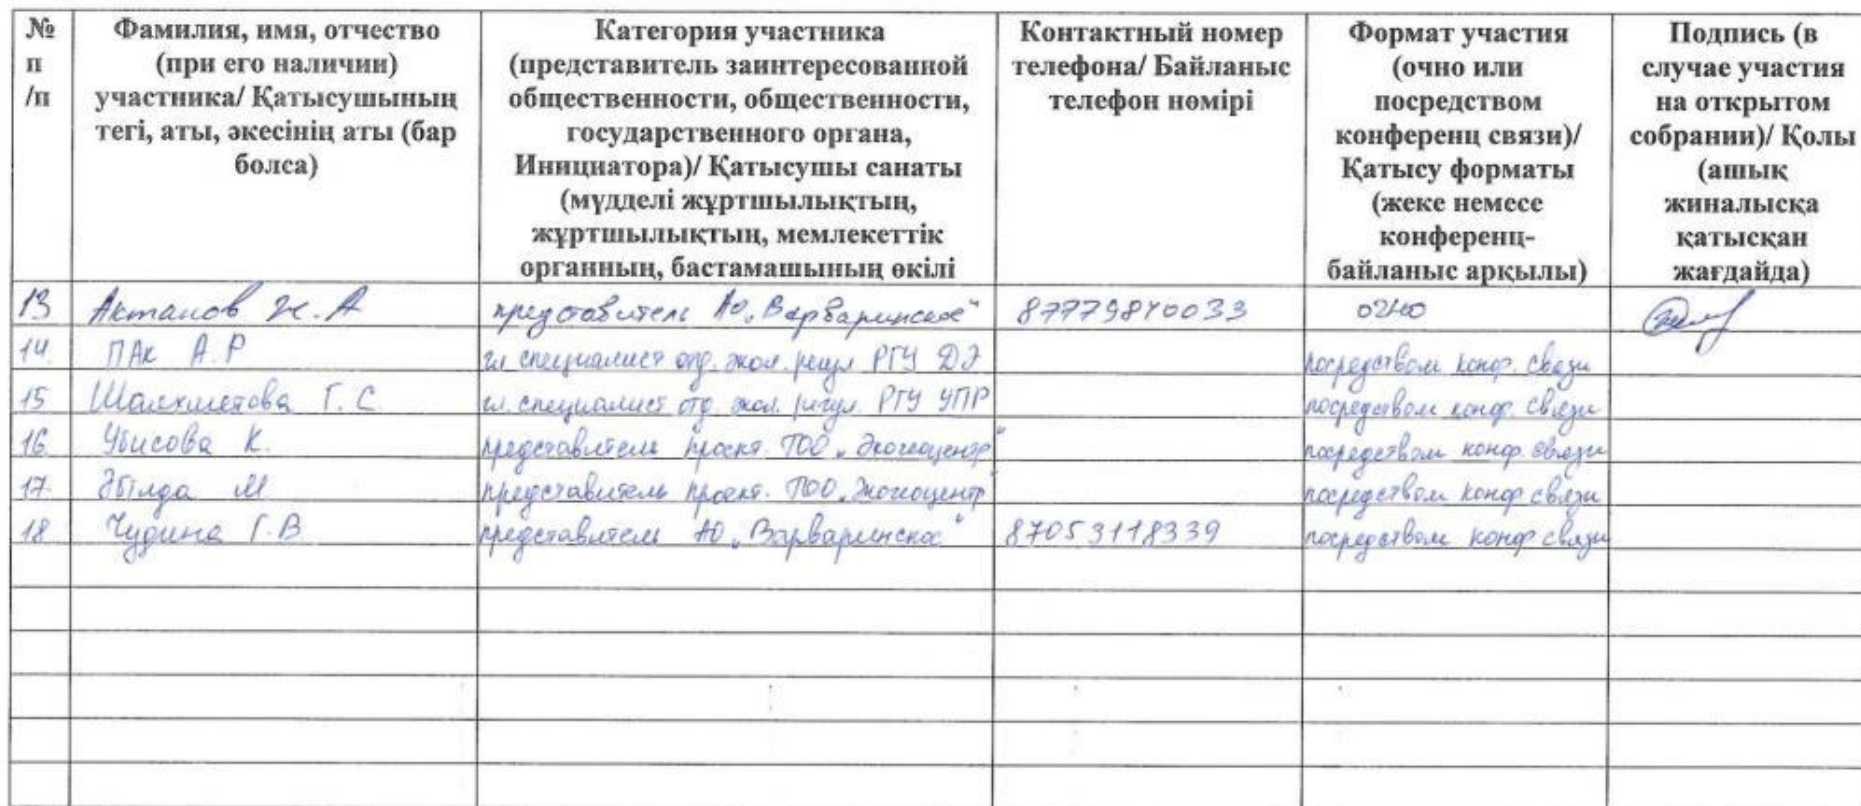 № п /п
Фамилия, имя, отчество (при его наличии) участника/ Қатысушының тегі, аты, әкесінің аты (бар болса)
Категория участника (представитель заинтересованной общественности, общественности, государственного органа, Инициатора)/ Қатысушы санаты (мүдделі жұртшылықтың, жұртшылықтың, мемлекеттік органның, бастамашының өкілі
Контактный номер телефона/ Байланыс телефон нөмірі
Формат участия (очно или посредством конференц связи)/ Қатысу форматы (жеке немесе конференц-байланыс арқылы)
Подпись (в случае участия на открытом собрании)/ Қолы (ашық жиналысқа қатысқан жағдайда)
13 Актанов Ж. А представитель АО „Варваринское“ 87779840033 очно
14. ПАк А. Р гл специалист отд. экол. регул РГУ ДЭ посредством конф. связи
15 Шаяхметова Г. С. гл. специалист отд. экол. регул. РГУ УПР посредством конф. связи
16. Убисова К. представитель проект. ТОО „Экогеоцентр“ посредством конф. связи
17. Әбілда М представитель проект. ТОО „Экогеоцентр“ посредством конф. связи
18. Чудина Г. В представитель АО „Варваринское“ 87053118339 посредством конф связи